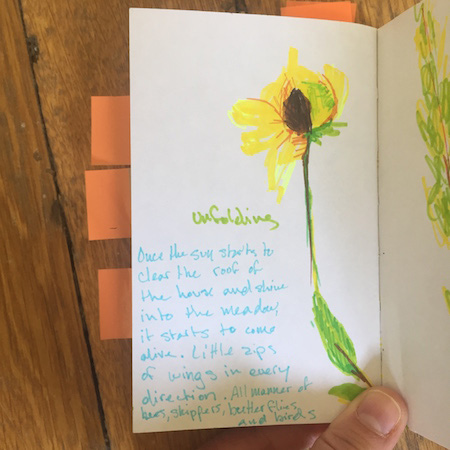 unfolding
Once the sun starts to
clear the roof of
the house and shine
into the meadow,
it starts to come
alive. Little zips
of wings in every
direction. All manner of
bees, skippers, butterflies,
and birds